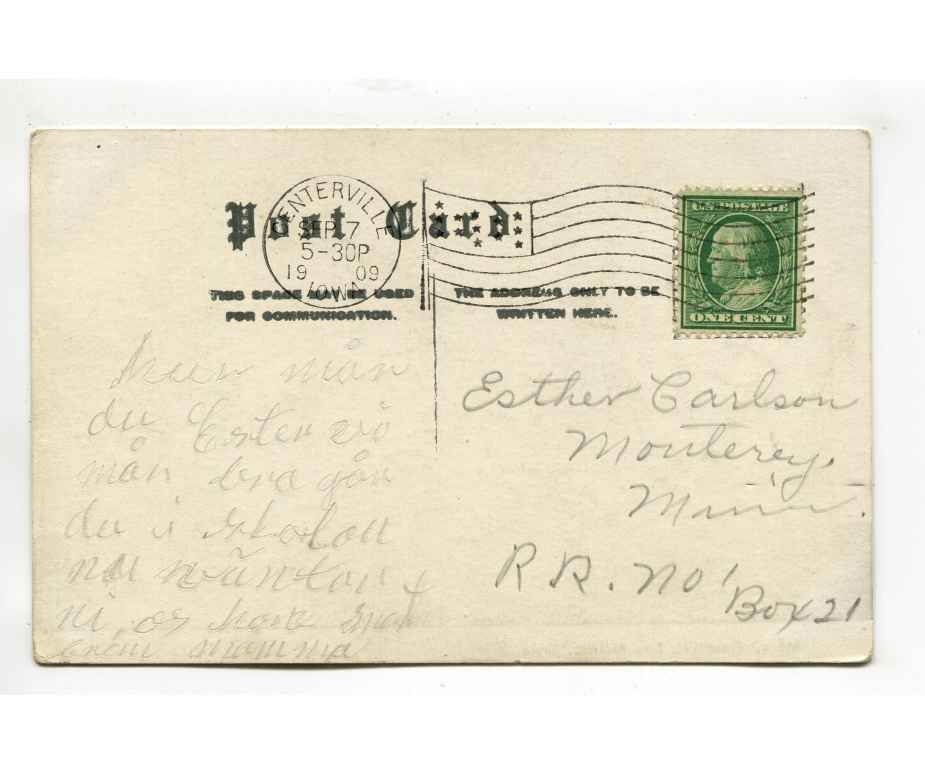 Post Card
CENTERVILLE
SEP 7
5-30P
1909
IOWA
THIS SPACE MAY BE USED
FOR COMMUNICATION.
THE ADDRESS ONLY TO BE
WRITTEN HERE.
ONE CENT
mån
du Ester vi
mån bra går
du i skolan
nu väntar
ni os
mamma
Esther Carlson
Monterey,
Minn.
R R. No 1
Box 21